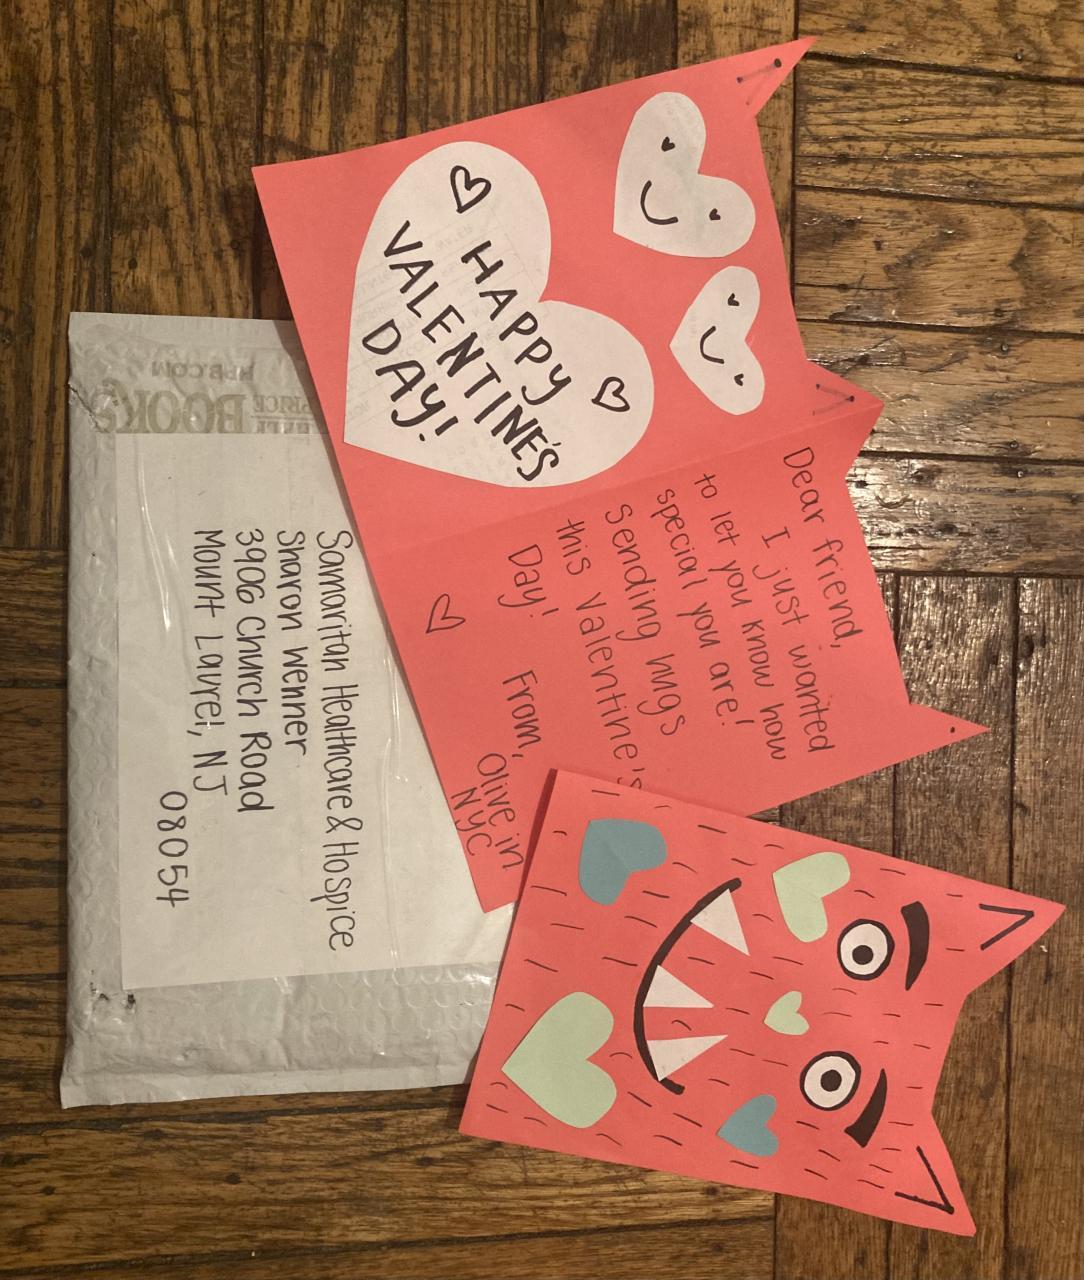 HAPPY
VALENTINE'S
DAY!
Dear friend,
I just wanted
to let you know how
special you are!
Sending hugs
this Valentine's
Day!
From,
Olive in
NYC
Samaritan Healthcare & Hospice
Sharon Wenner
3906 Church Road
Mount Laurel, NJ
08054
BOOKS